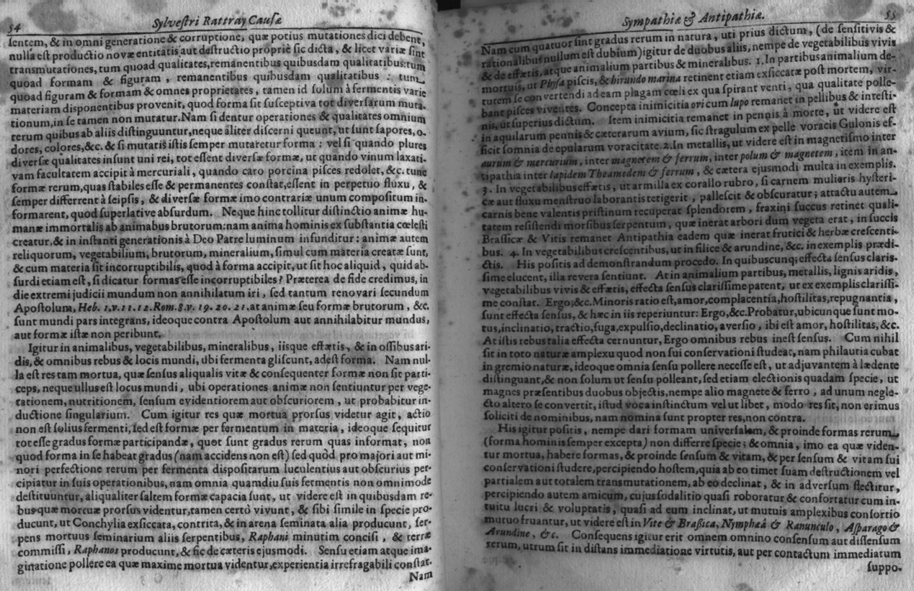 54 Sylvestri Rattray Causæ
sentem, & in omni generatione & corruptione, quæ potius mutationes dici debent,
nulla est productio novæ entitatis aut destructio propriè sic dicta, & licet variæ sint
transmutationes, tum quoad qualitates, remanentibus quibusdam qualitatibus: tum
quoad formam & figuram, remanentibus quibusdam qualitatibus: tum
quoad figuram & formam & omnes proprietates, tamen id solum à fermentis variè
materiam disponentibus provenit, quod forma sit susceptiva tot diversarum muta-
tionum, in se tamen non mutatur. Nam si dentur operationes & qualitates omnium
rerum quibus ab aliis distinguuntur, neque aliter discerni queunt, ut sunt sapores, o-
dores, colores, &c. & si mutatis istis semper mutaretur forma: vel si quando plures
diversæ qualitates insunt uni rei, tot essent diversæ formæ, ut quando vinum laxati-
vam facultatem accipit à mercuriali, quando caro porcina pisces redolet, &c. tunc
formæ rerum, quas stabiles esse & permanentes constat, essent in perpetuo fluxu, &
semper differrent à seipsis, & diversæ formæ imo contrariæ unum compositum in-
formarent, quod superlative absurdum. Neque hinc tollitur distinctio animæ hu-
manæ immortalis ab animabus brutorum: nam anima hominis ex substantia cœlesti
creatur, & in instanti generationis à Deo Patre luminum infunditur: animæ autem
reliquorum, vegetabilium, brutorum, mineralium, simul cum materia creatæ sunt,
& cum materia sit incorruptibilis, quod à forma accipit, ut sit hoc aliquid, quid ab-
surdi etiam est, si dicatur formas esse incorruptibiles? Præterea de fide credimus, in
die extremi judicii mundum non annihilatum iri, sed tantum renovari secundum
Apostolum, Heb. 1. v. 11. 12. Rom. 8. v. 19. 20. 21. at animæ seu formæ brutorum, &c.
sunt mundi pars integrans, ideoque contra Apostolum aut annihilabitur mundus,
aut formæ istæ non peribunt.
Igitur in animalibus, vegetabilibus, mineralibus, iisque effætis, & in ossibus ari-
dis, & omnibus rebus & locis mundi, ubi fermenta gliscunt, adest forma. Nam nul-
la est res tam mortua, quæ sensus aliqualis vitæ & consequenter formæ non sit parti-
ceps, neque ullus est locus mundi, ubi operationes animæ non sentiuntur per vege-
tationem, nutritionem, sensum evidentiorem aut obscuriorem, ut probabitur in-
ductione singularium. Cum igitur res quæ mortua prorsus videtur agit, actio
non est solius fermenti, sed est formæ per fermentum in materia, ideoque sequitur
tot esse gradus formæ participandæ, quot sunt gradus rerum quas informat, non
quod forma in se habeat gradus (nam accidens non est) sed quod pro majori aut mi-
nori perfectione rerum per fermenta dispositarum luculentius aut obscurius per-
cipiatur in suis operationibus, nam omnia quamdiu suis fermentis non omnimode
destituuntur, aliqualiter saltem formæ capacia sunt, ut videre est in quibusdam re-
bus quæ mortuæ prorsus videntur, tamen certò vivunt, & sibi simile in specie pro-
ducunt, ut Conchylia exsiccata, contrita, & in arena seminata alia producunt, ser-
pens mortuus seminarium aliis serpentibus, Raphani minutim concisi, & terræ
commissi, Raphanos producunt, & sic de cæteris ejusmodi. Sensu etiam atque ima-
ginatione pollere ea quæ maxime mortua videntur, experientia irrefragabili constat.
Nam
Sympathiæ & Antipathiæ. 55
Nam cum quatuor sint gradus rerum in natura, uti prius dictum, (de sensitivis &
rationalibus nullum est dubium) igitur de duobus aliis, nempe de vegetabilibus vivis
& de effætis, atque animalium partibus & mineralibus. 1. In partibus animalium de-
mortuis, ut Physa piscis, & hirundo marina retinent etiam exsiccatæ post mortem, vir-
tutem se convertendi ad eam plagam cœli ex qua spirant venti, qua qualitate polle-
bant pisces viventes. Concepta inimicitia ovi cum lupo remanet in pellibus & intesti-
nis, ut superius dictum. Item inimicitia remanet in pennis à morte, ut videre est
in aquilarum pennis & cæterarum avium, sic stragulum ex pelle voracis Gulonis ef-
ficit somnia de epularum voracitate. 2. In metallis, ut videre est in magnetismo inter
aurum & mercurium, inter magnetem & ferrum, inter polum & magnetem, item in an-
tipathia inter lapidem Theamedem & ferrum, & cætera ejusmodi multa in exemplis.
3. In vegetabilibus effætis, ut armilla ex corallo rubro, si carnem mulieris hysteri-
cæ aut fluxu menstruo laborantis tetigerit, pallescit & obscuratur; attactu autem
carnis bene valentis pristinum recuperat splendorem, fraxini succus retinet quali-
tatem resistendi morsibus serpentum, quæ inerat arbori dum vegeta erat, in succis
Brassicæ & Vitis remanet Antipathia eadem quæ inerat frutici & herbæ crescenti-
bus. 4. In vegetabilibus crescentibus, ut in filice & arundine, &c. in exemplis prædi-
ctis. His positis ad demonstrandum procedo. In quibuscunque effecta sensus claris-
sime elucent, illa revera sentiunt. At in animalium partibus, metallis, lignis aridis,
vegetabilibus vivis & effætis, effecta sensus clarissime patent, ut ex exemplis clarissi-
me constat. Ergo, &c. Minoris ratio est, amor, complacentia, hostilitas, repugnantia,
sunt effecta sensus, & hæc in iis reperiuntur: Ergo, &c. Probatur, ubicunque sunt mo-
tus, inclinatio, tractio, fuga, expulsio, declinatio, aversio, ibi est amor, hostilitas, &c.
At istis rebus talia effecta cernuntur, Ergo omnibus rebus inest sensus. Cum nihil
sit in toto naturæ amplexu quod non sui conservationi studeat, nam philautia cubat
in gremio naturæ, ideoque omnia sensu pollere necesse est, ut adjuvantem à lædente
distinguant, & non solum ut sensu polleant, sed etiam electionis quadam specie, ut
magnes præsentibus duobus objectis, nempe alio magnete & ferro, ad unum negle-
cto altero se convertit, istud voca instinctum vel ut libet, modo res sit, non erimus
soliciti de nominibus, nam nomina sunt propter res, non contra.
His igitur positis, nempe dari formam universalem, & proinde formas rerum
(forma hominis semper excepta) non differre specie; & omnia, imo ea quæ viden-
tur mortua, habere formas, & proinde sensum & vitam, & per sensum & vitam sui
conservationi studere, percipiendo hostem, quia ab eo timet suam destructionem vel
partialem aut totalem transmutationem, ab eo declinat, & in adversum flectitur,
percipiendo autem amicum, cujus sodalitio quasi roboratur & confortatur cum in-
tuitu lucri & voluptatis, quasi ad eum inclinat, ut mutuis amplexibus consortio
mutuo fruantur, ut videre est in Vite & Brassica, Nymphæa & Ranunculo, Asparago &
Arundine, &c. Consequens igitur erit omnem omnino consensum aut dissensum
rerum, utrum sit in distans immediatione virtutis, aut per contactum immediatum
suppo-